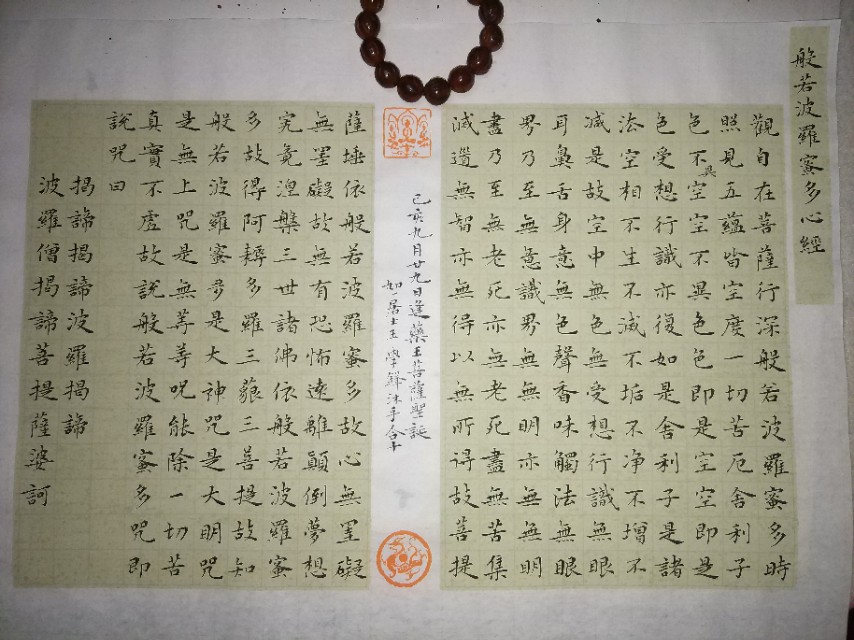 般若波羅蜜多心經
觀自在菩薩行深般若波羅蜜多時
照見五蘊皆空度一切苦厄舍利子
色不異空空不異色色即是空空即是
色受想行識亦復如是舍利子是諸
法空相不生不滅不垢不净不增不
减是故空中無色無受想行識無眼
耳鼻舌身意無色聲香味觸法無眼
界乃至無意識界無無明亦無無明
盡乃至無老死亦無老死盡無苦集
滅道無智亦無得以無所得故菩提
己亥九月廿九日逢藥王菩薩聖誕
士王學沐手合十
薩埵依般若波羅蜜多故心無罣礙
無罣礙故無有恐怖遠離顛倒夢想
究竟涅槃三世諸佛依般若波羅蜜
多故得阿耨多羅三藐三菩提故知
般若波羅蜜多是大神咒是大明咒
是無上咒是無等等咒能除一切苦
真實不虛故說般若波羅蜜多咒即
說咒曰
揭諦揭諦波羅揭諦
波羅僧揭諦菩提薩婆訶